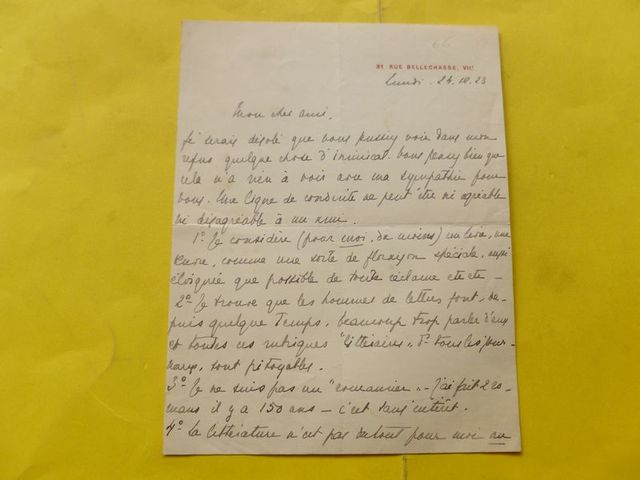 31 RUE BELLECHASSE, VIIᵉ
Lundi. 24.10.23
Mon cher ami.
Je serais désolé que vous pussiez voir dans mon
refus quelque chose d'inimical. Vous pensez bien que
cela n'a rien à voir avec ma sympathie pour
vous. Une ligne de conduite ne peut être ni agréable
ni désagréable à un ami.
1º Je considère (pour moi, du moins) un livre, une
œuvre, comme une sorte de floraison spéciale, aussi
éloignée que possible de toute réclame etc etc -
2º Je trouve que les hommes de lettres font, de-
puis quelque temps, beaucoup trop parler d'eux
et toutes ces rubriques "littéraires" ds tous les jour-
naux, sont pitoyables.
3º Je ne suis pas un "romancier" - J'ai fait 2 ro-
mans il y a 150 ans - c'est sans intérêt.
4º La littérature n'est pas du tout pour moi un